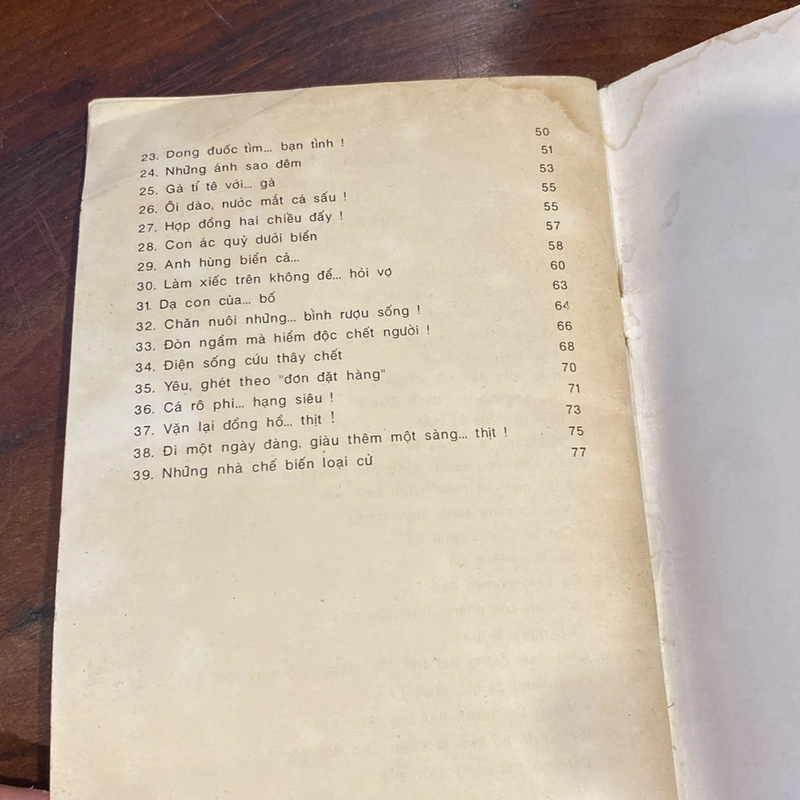 23. Dong đuốc tìm... bạn tình ! 50
24. Những ánh sao đêm 51
25. Gà tỉ tê với... gà 53
26. Ôi dào, nước mắt cá sấu ! 55
27. Hợp đồng hai chiều đấy ! 55
28. Con ác quỷ dưới biển 57
29. Anh hùng biển cả... 58
30. Làm xiếc trên không để... hỏi vợ 60
31. Dạ con của... bố 63
32. Chăn nuôi những... bình rượu sống ! 64
33. Đòn ngầm mà hiểm độc chết người ! 66
34. Điện sống cứu thây chết 68
35. Yêu, ghét theo "đơn đặt hàng" 70
36. Cá rô phi... hạng siêu ! 71
37. Vặn lại đồng hồ... thịt ! 73
38. Đi một ngày đàng, giàu thêm một sàng... thịt ! 75
39. Những nhà chế biến loại cừ 77